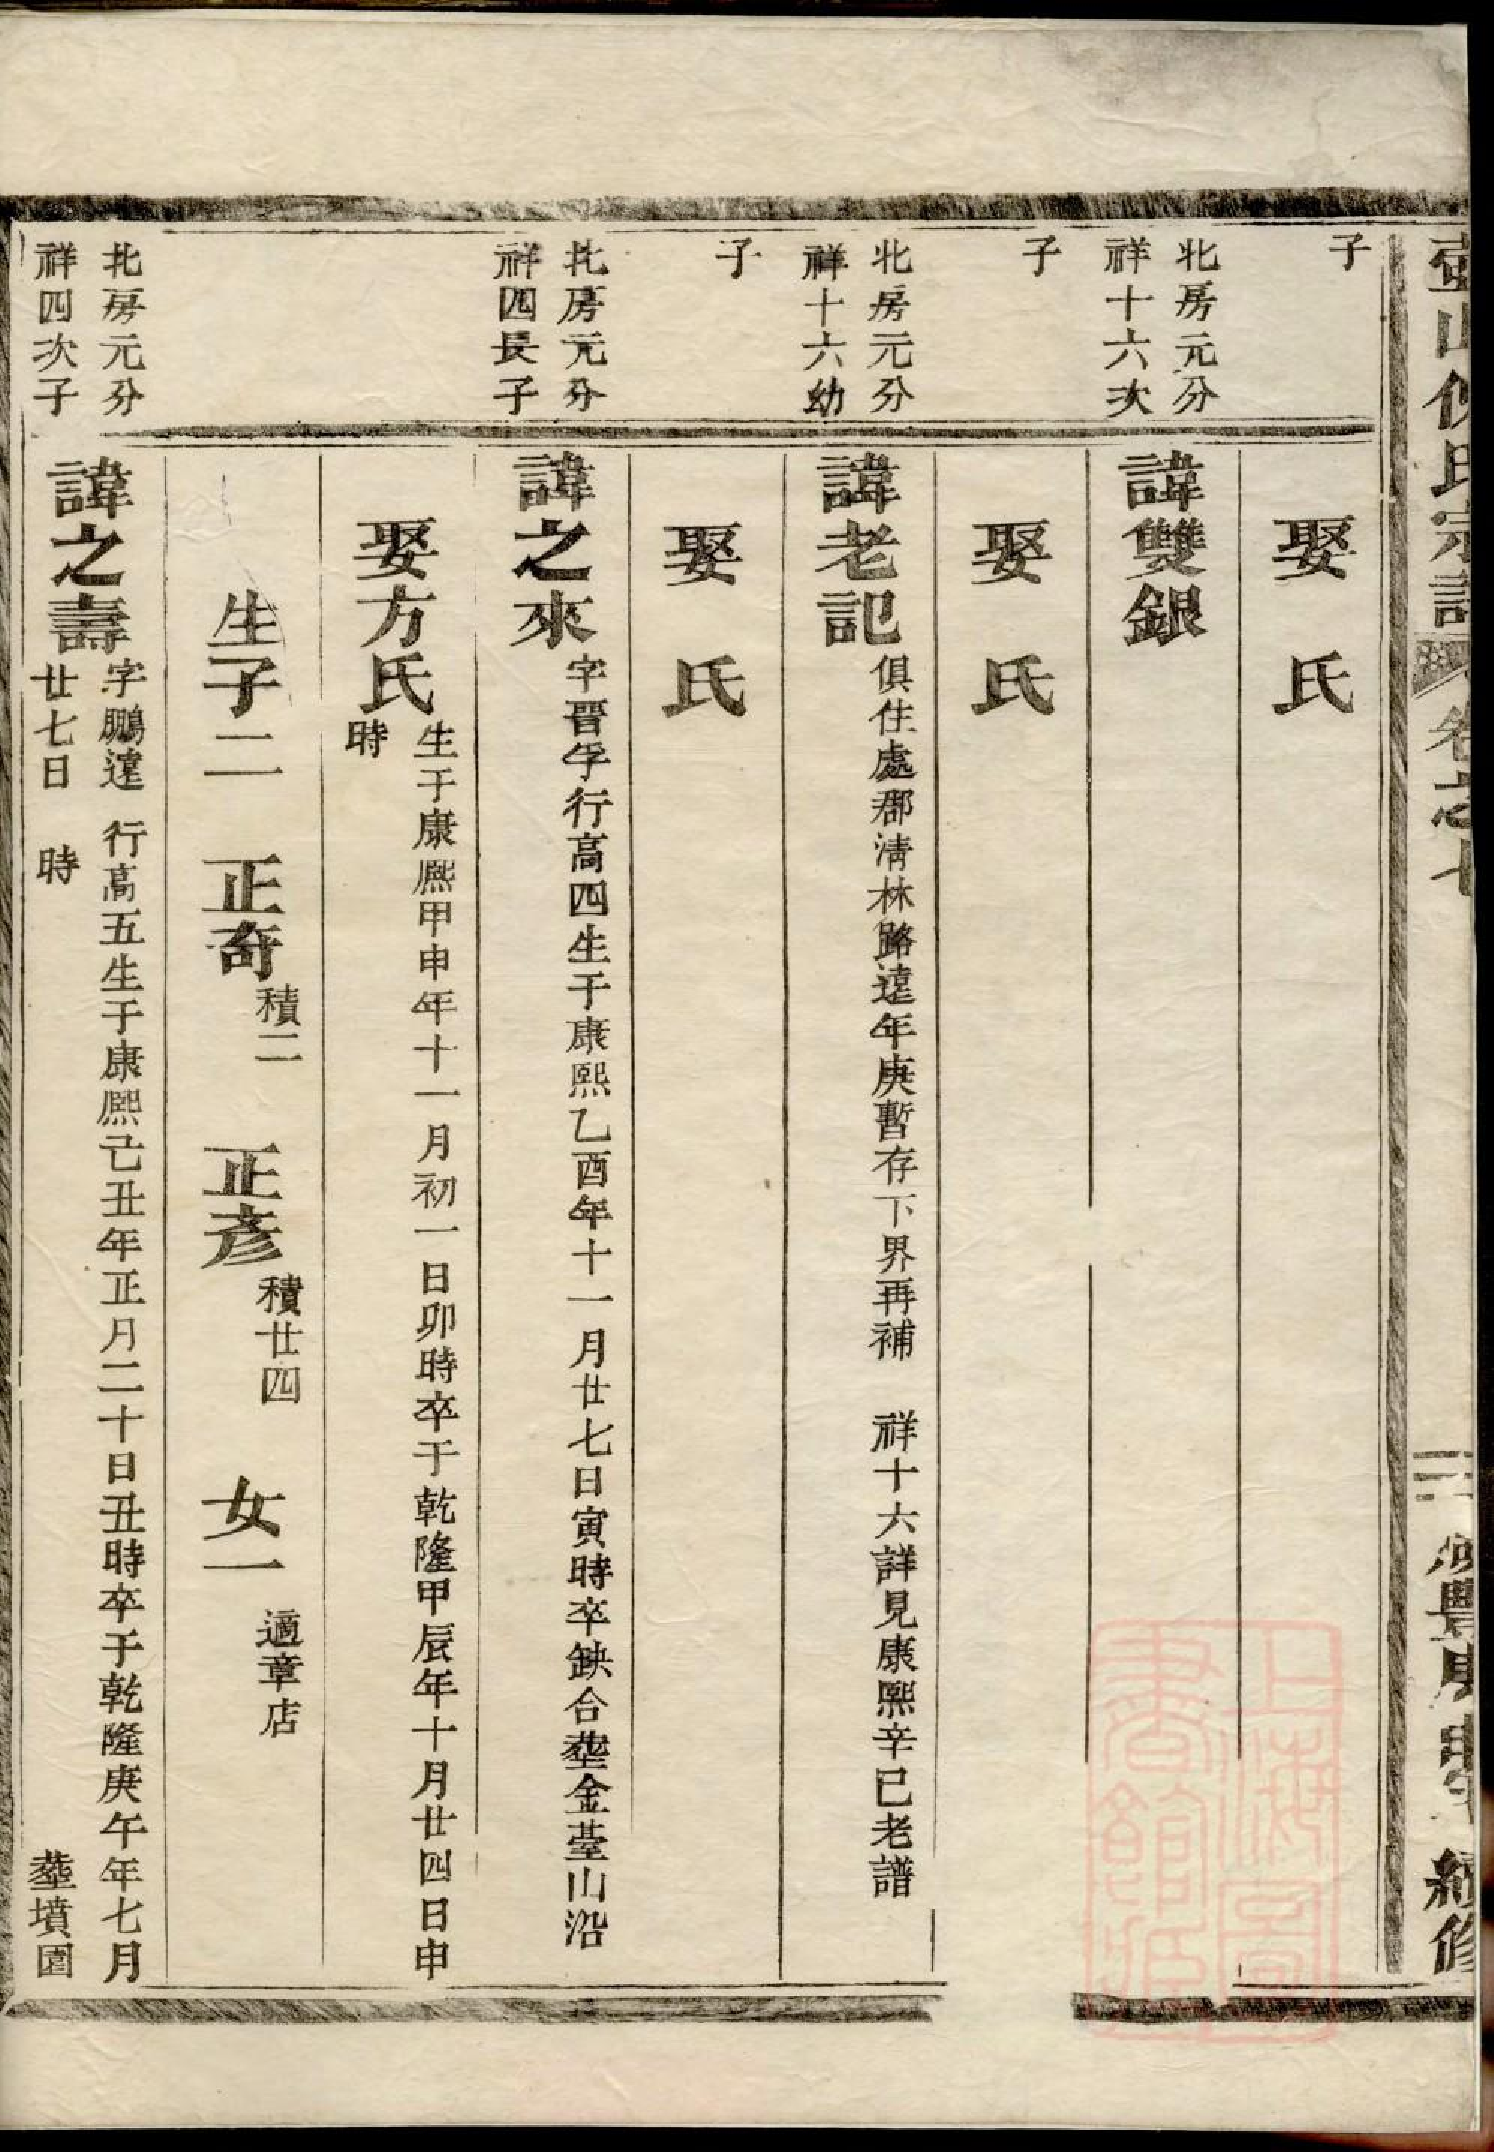 壺山倪氏宗譜
卷之七
二六
咸豐庚申年 續修
子
娶 氏
北房元分
祥十六次
子
諱雙銀
娶 氏
北房元分
祥十六幼
子
諱老記
俱住處郡淸林路遠年庚暫存下界再補 祥十六詳見康熙辛巳老譜
娶 氏
北房元分
祥四長子
諱之來
字晉孚行高四生于康熙乙酉年十一月廿七日寅時卒缺合塟金䑓山沿
娶方氏
生于康熙甲申年十一月初一日卯時卒于乾隆甲辰年十月廿四日申
時
生子二 正奇 積二 正彥 積廿四 女一 適章店
北房元分
祥四次子
諱之壽
字鵬達 行高五生于康熙己丑年正月二十日丑時卒于乾隆庚午年七月
廿七日 時 塟墳園
上海圖
書館藏